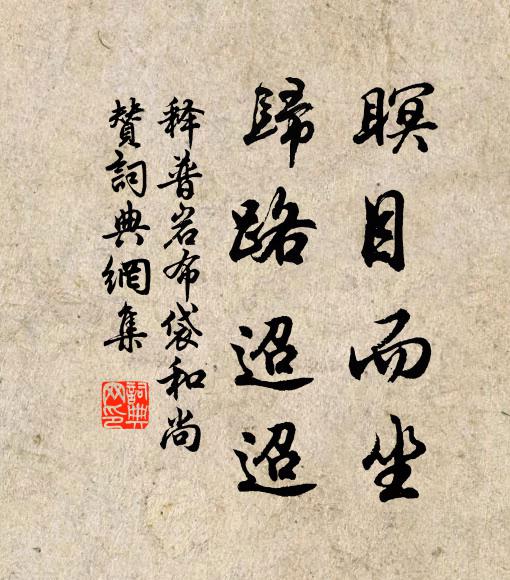 瞑目而坐
歸路迢迢
释普岩布袋和尚
贊詞典網集
詞典
网印